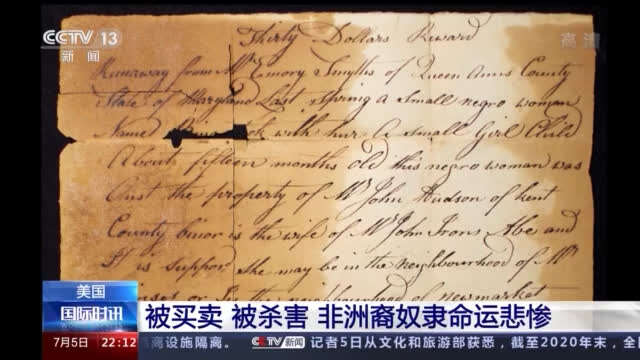 CCTV 13
新闻
高清
Thirty Dollars Reward
Runaway from Mr Emory Smyths of Queen Anns County
State of Maryland Last Spring a Small negro woman
Named with hur A Small Girl Child
About fifteen months old this negro woman was
Onst the property of Mr John Hudson of Kent
County is the wife of Mr John Irons Abe and
It is Suppord She may be in the neighbourhood of Mr
neighbourhood of newmarket
美国
国际时讯
被买卖 被杀害 非洲裔奴隶命运悲惨
7月5日 22:12 商设施隔离。 CCTV 新闻 记者5日从文化和旅游部获悉，截至2020年末，全